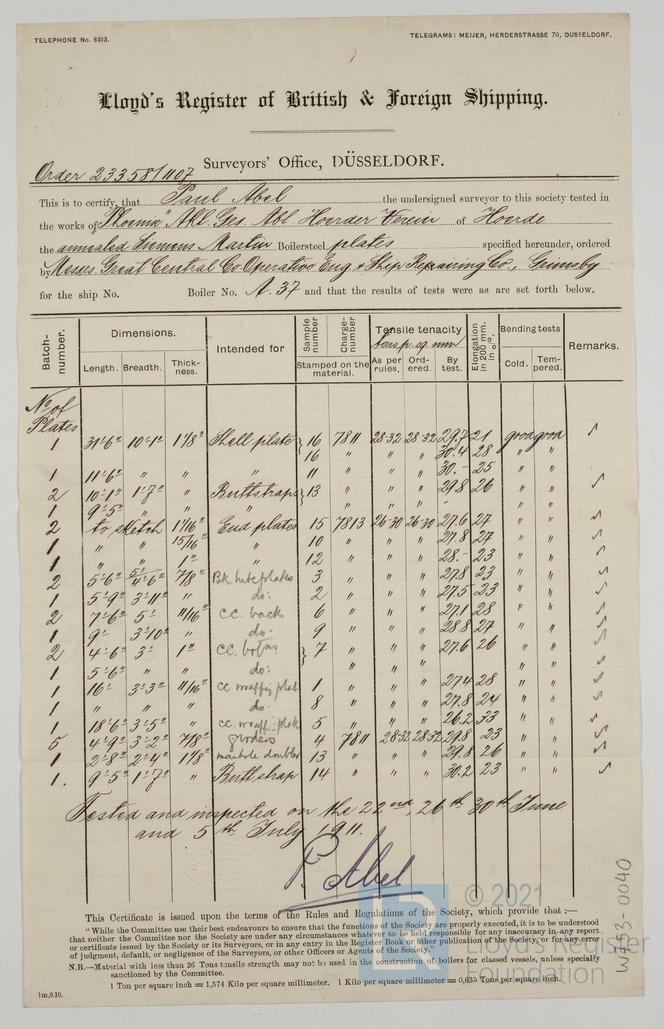 TELEPHONE No. 6313. TELEGRAMS: MEIJER, HERDERSTRASSE 70, DUSSELDORF.
Lloyd's Register of British & Foreign Shipping.
Surveyors' Office, DÜSSELDORF.
Order 23358/1107
This is to certify, that Paul Abel the undersigned surveyor to this society tested in
the works of "Phoenix" Akt. Ges. Abt. Hoerder Verein of Hoerde
the annealed Siemens Martin Boilersteel plates specified hereunder, ordered
by Messrs Great Central Co Operative Eng. & Ship Repairing Co., Grimsby
for the ship No. Boiler No. A. 37 and that the results of tests were as set forth below.
Batch-number. Dimensions. Length. Breadth. Thick-ness. Intended for Sample number Charge-number Stamped on the material. Tensile tenacity tons p. sq. mm As per rules. Ord-ered. By test. Elongation in 200 mm. in %. Bending tests Cold. Tem-pered. Remarks.
No of
Plates
1 31'-6" 10'-1" 1 1/8" Shell plate } 16 7811 28-32 28-32 29.7 21 good good
16 " " " 30.4 28 " "
1 11'-6" " " " 11 " " " 30.- 25 " "
2 10'-1" 1'-7" " Buttstraps } 13 " " " 29.8 26 " "
1 9'-5" " " " " " " " "
2 to sketch 1 1/16" End plates 15 7813 26-30 26-30 27.6 27 " "
1 " " 15/16" " 10 " " " 27.8 27 " "
1 " " 1" " 12 " " " 28.- 23 " "
2 5'-6" 5'/4'-6" 7/8" Bk. tube plates 3 " " " 27.8 23 " "
1 5'-9" 3'-11" " do: 2 " " " 27.5 23 " "
2 7'-6" 5' 11/16" CC. backs 6 " " " 27.1 28 " "
1 9'- 3'-10" " do. 9 " " " 28.8 27 " "
2 4'-6" 3' 1" CC. botms } 7 " " " 27.6 26 " "
1 5'-6" " " do: " " " " "
1 16'- 3'-3" 11/16" CC wrapping plat 1 " " " 27.4 28 " "
1 " " " do. 8 " " " 27.8 24 " "
1 18'-6" 3'-5" " CC. wrapp: plate 5 " " " 26.2 33 " "
5 4'-9" 3'-2" 7/8" girders 4 7811 28-32 28-32 29.8 23 " "
1 2'-8" 2'-4" 1 1/8" manhole doubler 13 " " " 29.8 26 " "
1. 9'-5" 1'-7" " Buttstrap 14 " " " 30.2 23 " "
Tested and inspected on the 22nd, 26th 30th June
and 5th July 1911.
P. Abel
This Certificate is issued upon the terms of the Rules and Regulations of the Society, which provide that :—
"While the Committee use their best endeavours to ensure that the functions of the Society are properly executed, it is to be understood
that neither the Committee nor the Society are under any circumstances whatever to be held responsible for any inaccuracy in any report
or certificate issued by the Society or its Surveyors, or in any entry in the Register Book or other publication of the Society, or for any error
of judgment, default, or negligence of the Surveyors, or other Officers or Agents of the Society."
N.B.—Material with less than 26 Tons tensile strength may not be used in the construction of boilers for classed vessels, unless specially
sanctioned by the Committee.
1 Ton per square inch = 1,574 Kilo per square millimeter. 1 Kilo per square millimetre = 0,635 Tons per square inch.
1m.9.10.
W453-0040
© 2021
Lloyd's Register
Foundation